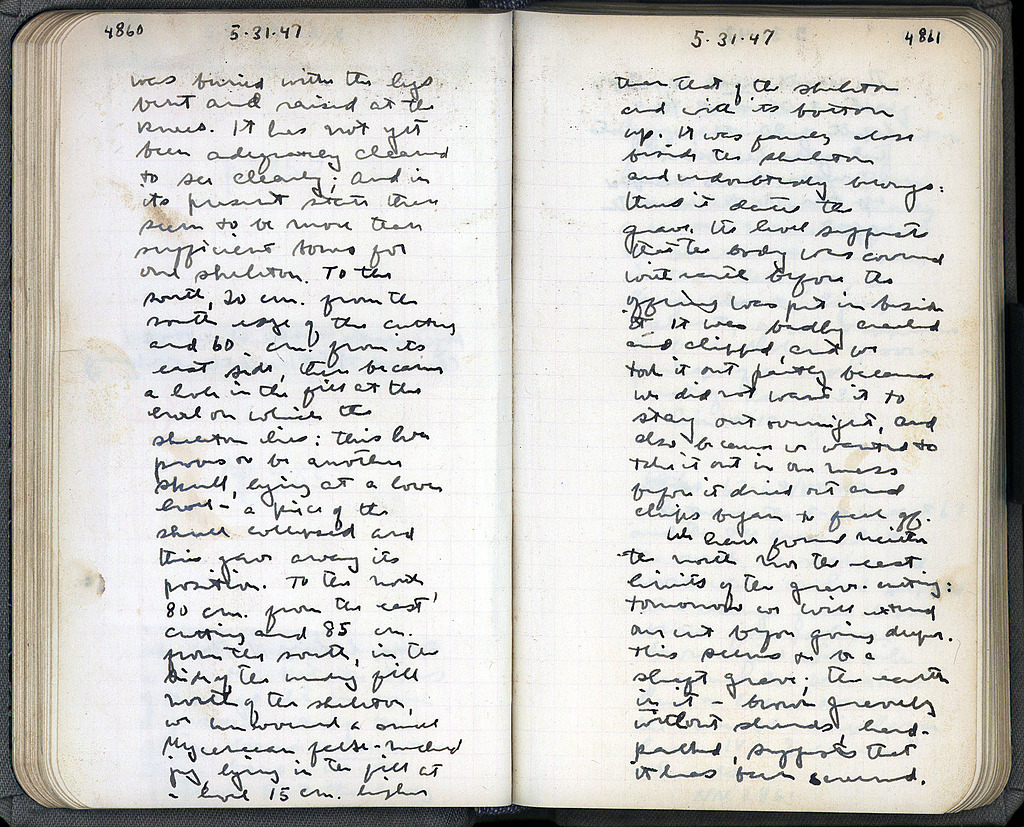 4860
5·31·47
was buried with the legs
bent and raised at the
knees. It has not yet
been adequately cleaned
to see clearly; and in
its present state there
seem to be more than
sufficient bones for
one skeleton. To the
south, 20 cm. from the
south edge of the cutting
and 60 cm. from its
east side, there became
a hole in the fill at the
level on which the
skeleton lies: this hole
proves to be another
skull, lying at a lower
level - a piece of the
skull collapsed and
this gave away its
position. To the north,
80 cm. from the east
cutting and 85 cm.
from the south, in the
side of the fill
north of the skeleton,
we uncovered a small
Mycenaean false-necked
jug, lying in the fill at
a level 15 cm. higher
5·31·47
4861
than that of the skeleton
and with its bottom
up. It was fairly close
beside the skeleton
and undoubtedly belongs:
thus it dates the
grave. Its level suggests
that the body was covered
with earth before the
offering was put in beside
it. It was badly cracked
and chipped, and we
took it out partly because
we did not want it to
stay out overnight, and
also because we wanted to
take it out in one mess
before it dried out and
chips began to peel off.
We have found neither
the north nor the east
limits of the grave cutting:
tomorrow we will extend
our cut before going deeper.
This seems to be a
shaft grave; the earth
in it - brown gravelly
without sherds, hard-
packed, suggests that
it has been